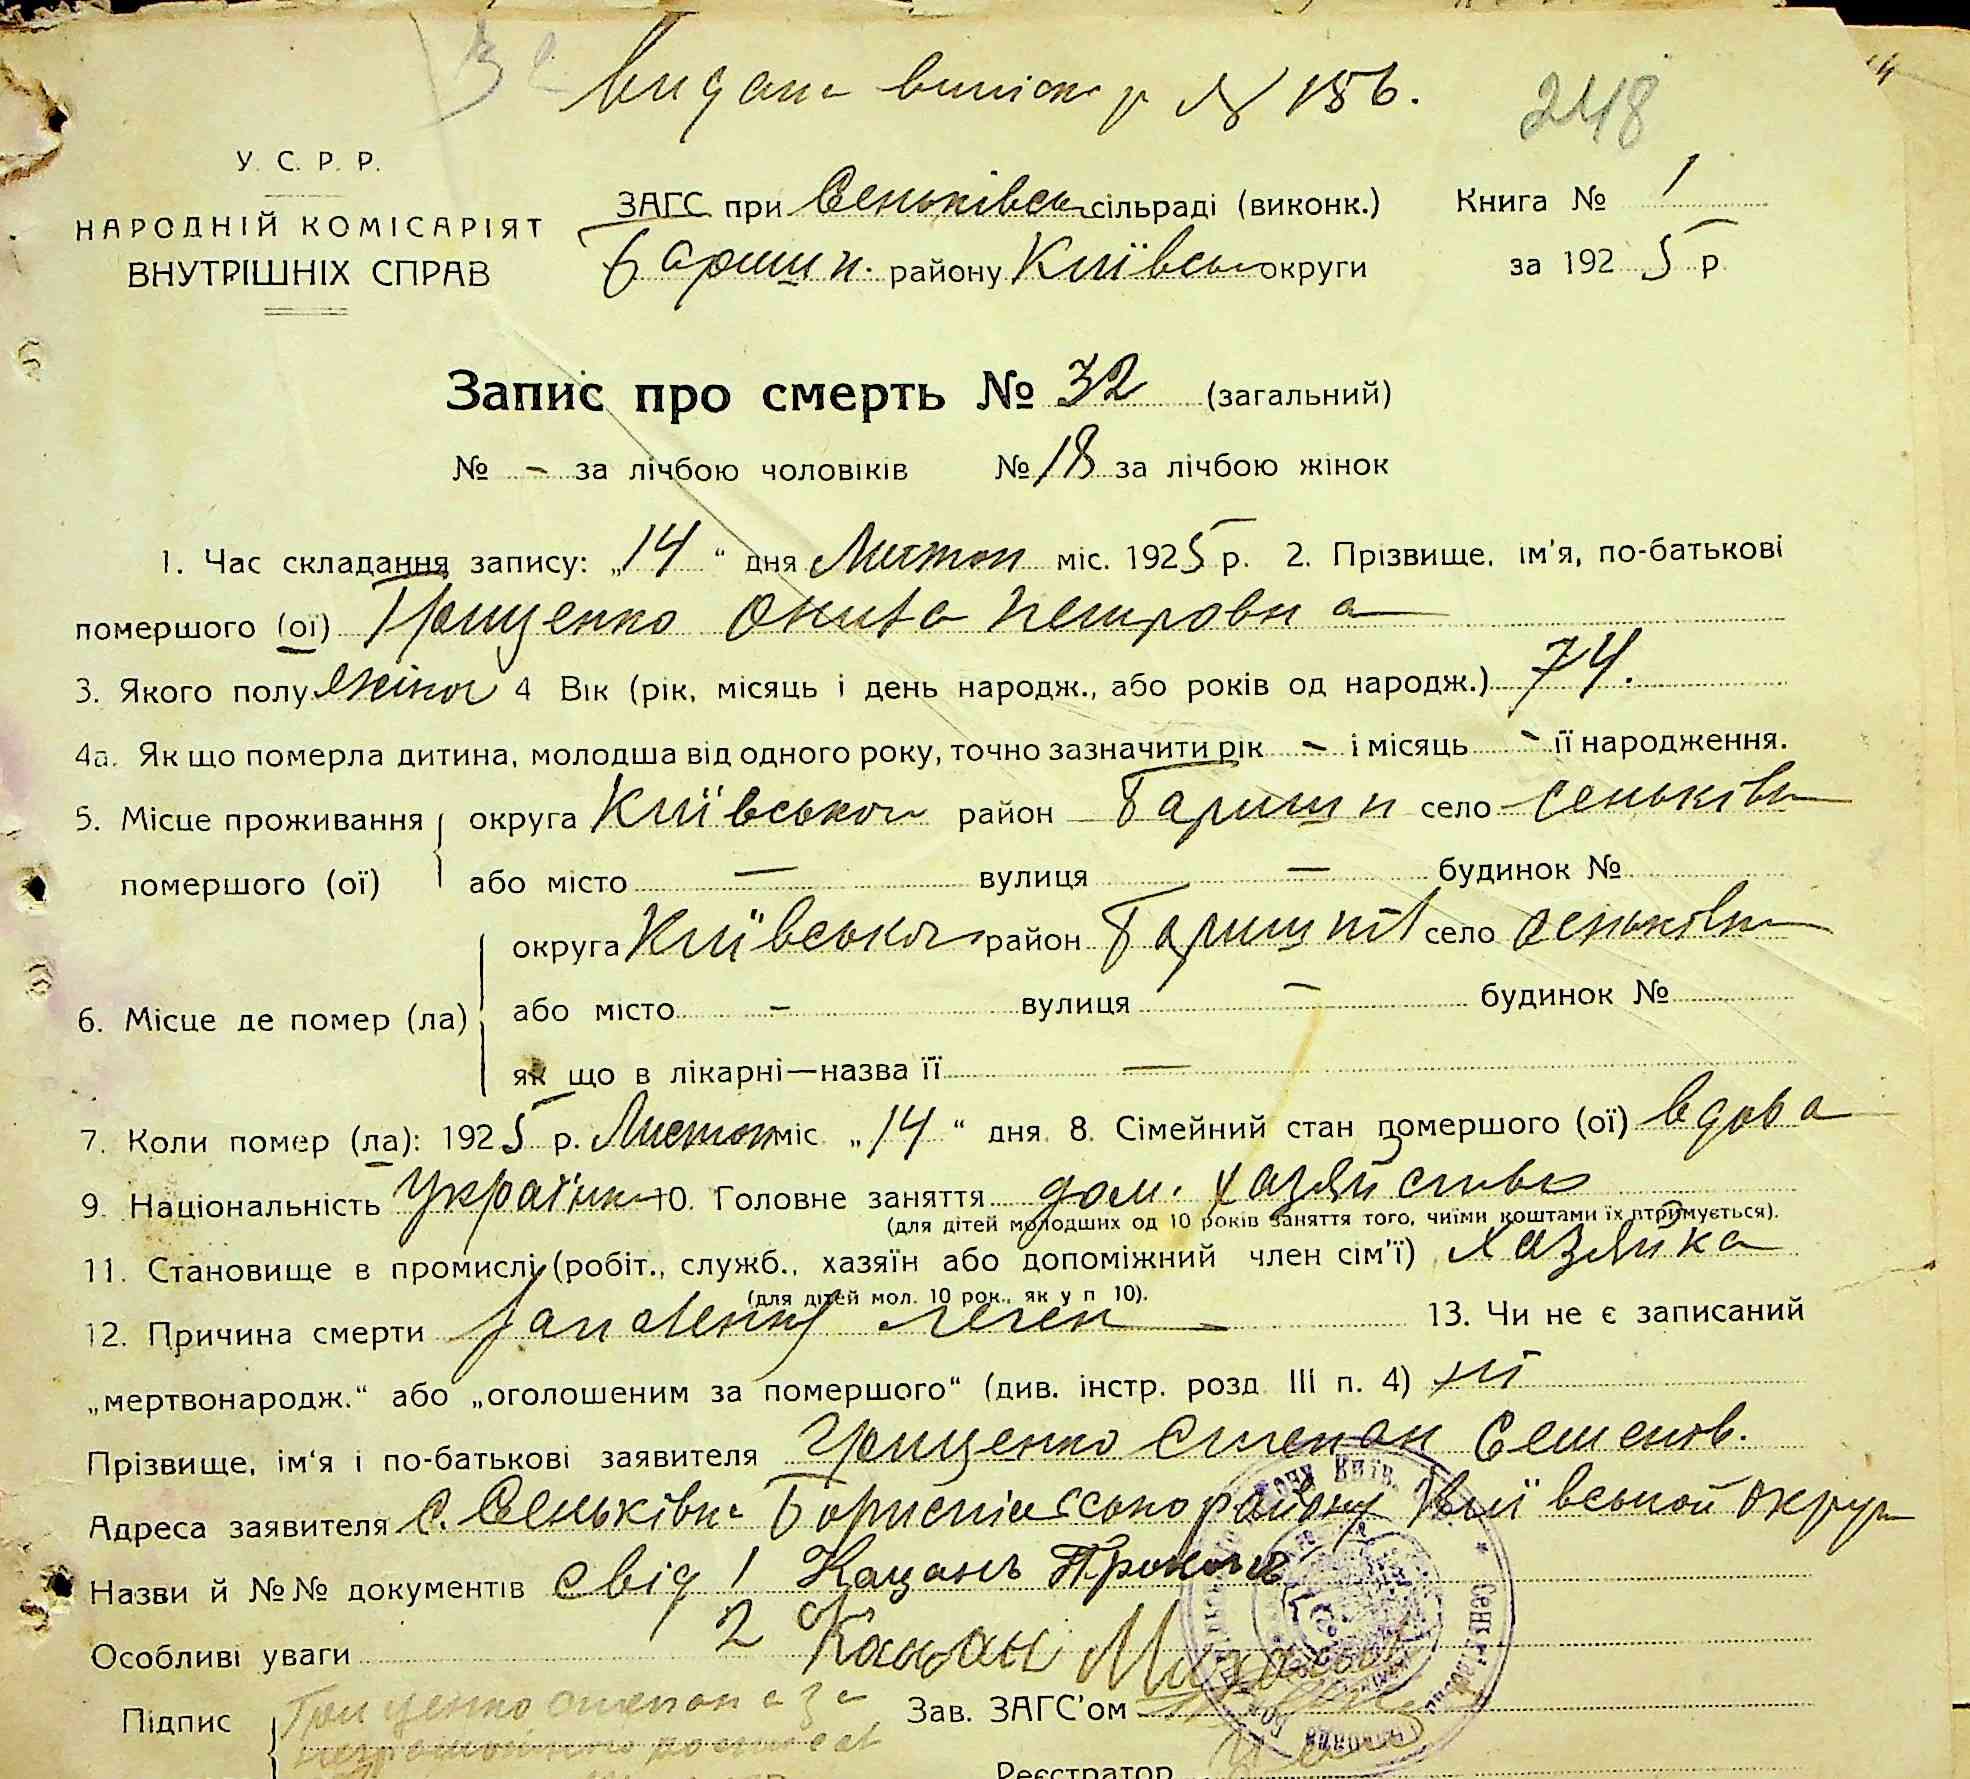 видана виписка № 156.
248
У. С. Р. Р.
НАРОДНІЙ КОМІСАРІЯТ
ВНУТРІШНІХ СПРАВ
ЗАГС при Сеньківсь сільраді (виконк.)
Баришп. району Київсь округи
Книга № 1
за 1925 р.
Запис про смерть № 32 (загальний)
№ - за лічбою чоловіків № 18 за лічбою жінок
1. Час складання запису: „14“ дня Листоп міс. 1925 р. 2. Прізвище, ім'я, по-батькові
помершого (ої) Грищенко Петровна
3. Якого полу жіноч 4 Вік (рік, місяць і день народж., або років од народж.) 74.
4а. Як що померла дитина, молодша від одного року, точно зазначити рік - і місяць - її народження.
5. Місце проживання округа Київської район Баришп село Сеньківка
помершого (ої) або місто — вулиця — будинок №
округа Київської район Баришпіл село Сеньківка
6. Місце де помер (ла) або місто - вулиця — будинок №
як що в лікарні—назва її —
7. Коли помер (ла): 1925 р. Листоп міс. „14“ дня. 8. Сімейний стан помершого (ої) вдова
9. Національність Українк 10. Головне заняття дом. хазяйство
(для дітей молодших од 10 років заняття того, чиїми коштами їх втримується).
11. Становище в промислі (робіт., служб., хазяїн або допоміжний член сім'ї) Хазяйка
(для дітей мол. 10 рок., як у п 10).
12. Причина смерти запалення леген 13. Чи не є записаний
„мертвонародж.“ або „оголошеним за помершого“ (див. інстр. розд. III п. 4) ні
Прізвище, ім'я і по-батькові заявителя Грищенко Степан Семенов.
Адреса заявителя с. Сеньківка Бориспільського району Київської округи
Назви й №№ документів свід 1 Кацанъ
2 Кацан
Особливі уваги
Підпис Грищенко Степан а за
Зав. ЗАГС'ом
Реєстратор